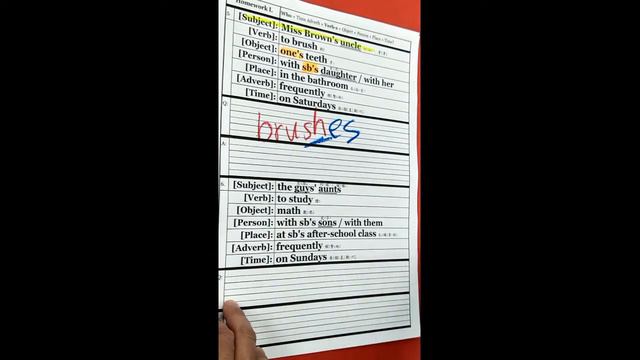 Homework I.
Who + Time Adverb + Verb-s + Object + Person + Place + Time?
5.
[Subject]: Miss Brown's uncle
[Verb]: to brush
[Object]: one's teeth
[Person]: with sb's daughter / with her
[Place]: in the bathroom
[Adverb]: frequently
[Time]: on Saturdays
Q:
brushes
A:
6.
[Subject]: the guys' aunts
[Verb]: to study
[Object]: math
[Person]: with sb's sons / with them
[Place]: at sb's after-school class
[Adverb]: frequently
[Time]: on Sundays